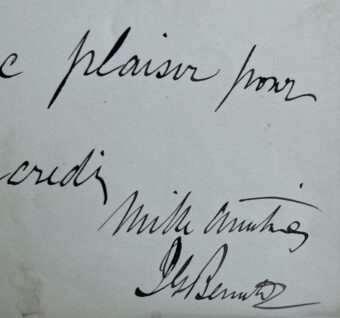 c plaisir pour
credi
Mille amitiés
JGBennett